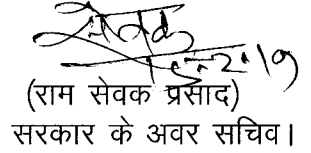 सेवक
(राम सेवक प्रसाद)
सरकार के अवर सचिव।